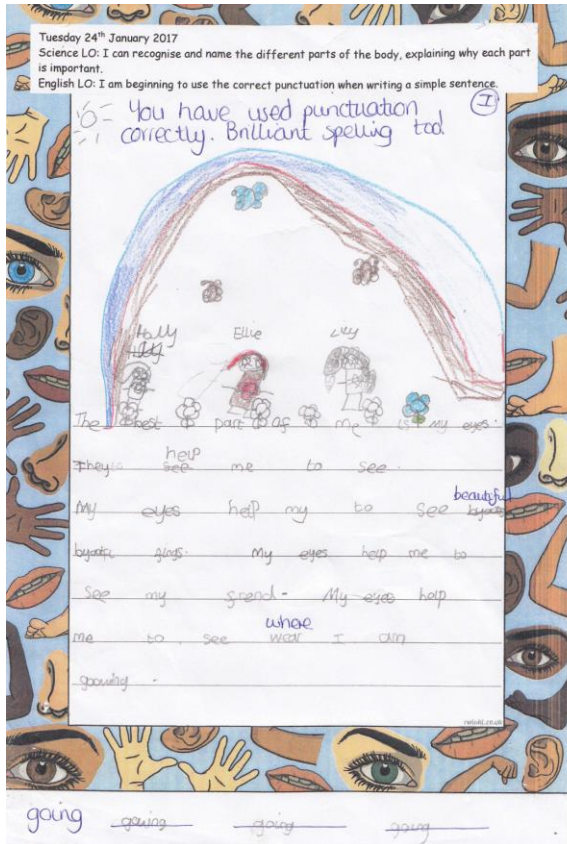 Tuesday 24th January 2017
Science LO: I can recognise and name the different parts of the body, explaining why each part
is important.
English LO: I am beginning to use the correct punctuation when writing a simple sentence.
I
You have used punctuation
correctly. Brilliant spelling too!
Holly Ellie Lily
The best part of me is my eyes.
help
They see me to see.
beautiful
My eyes help my to see
My eyes help me to
see my frend. My eyes help
where
me to see wear I am
gowing.
twinkl.co.uk
going gowing going going